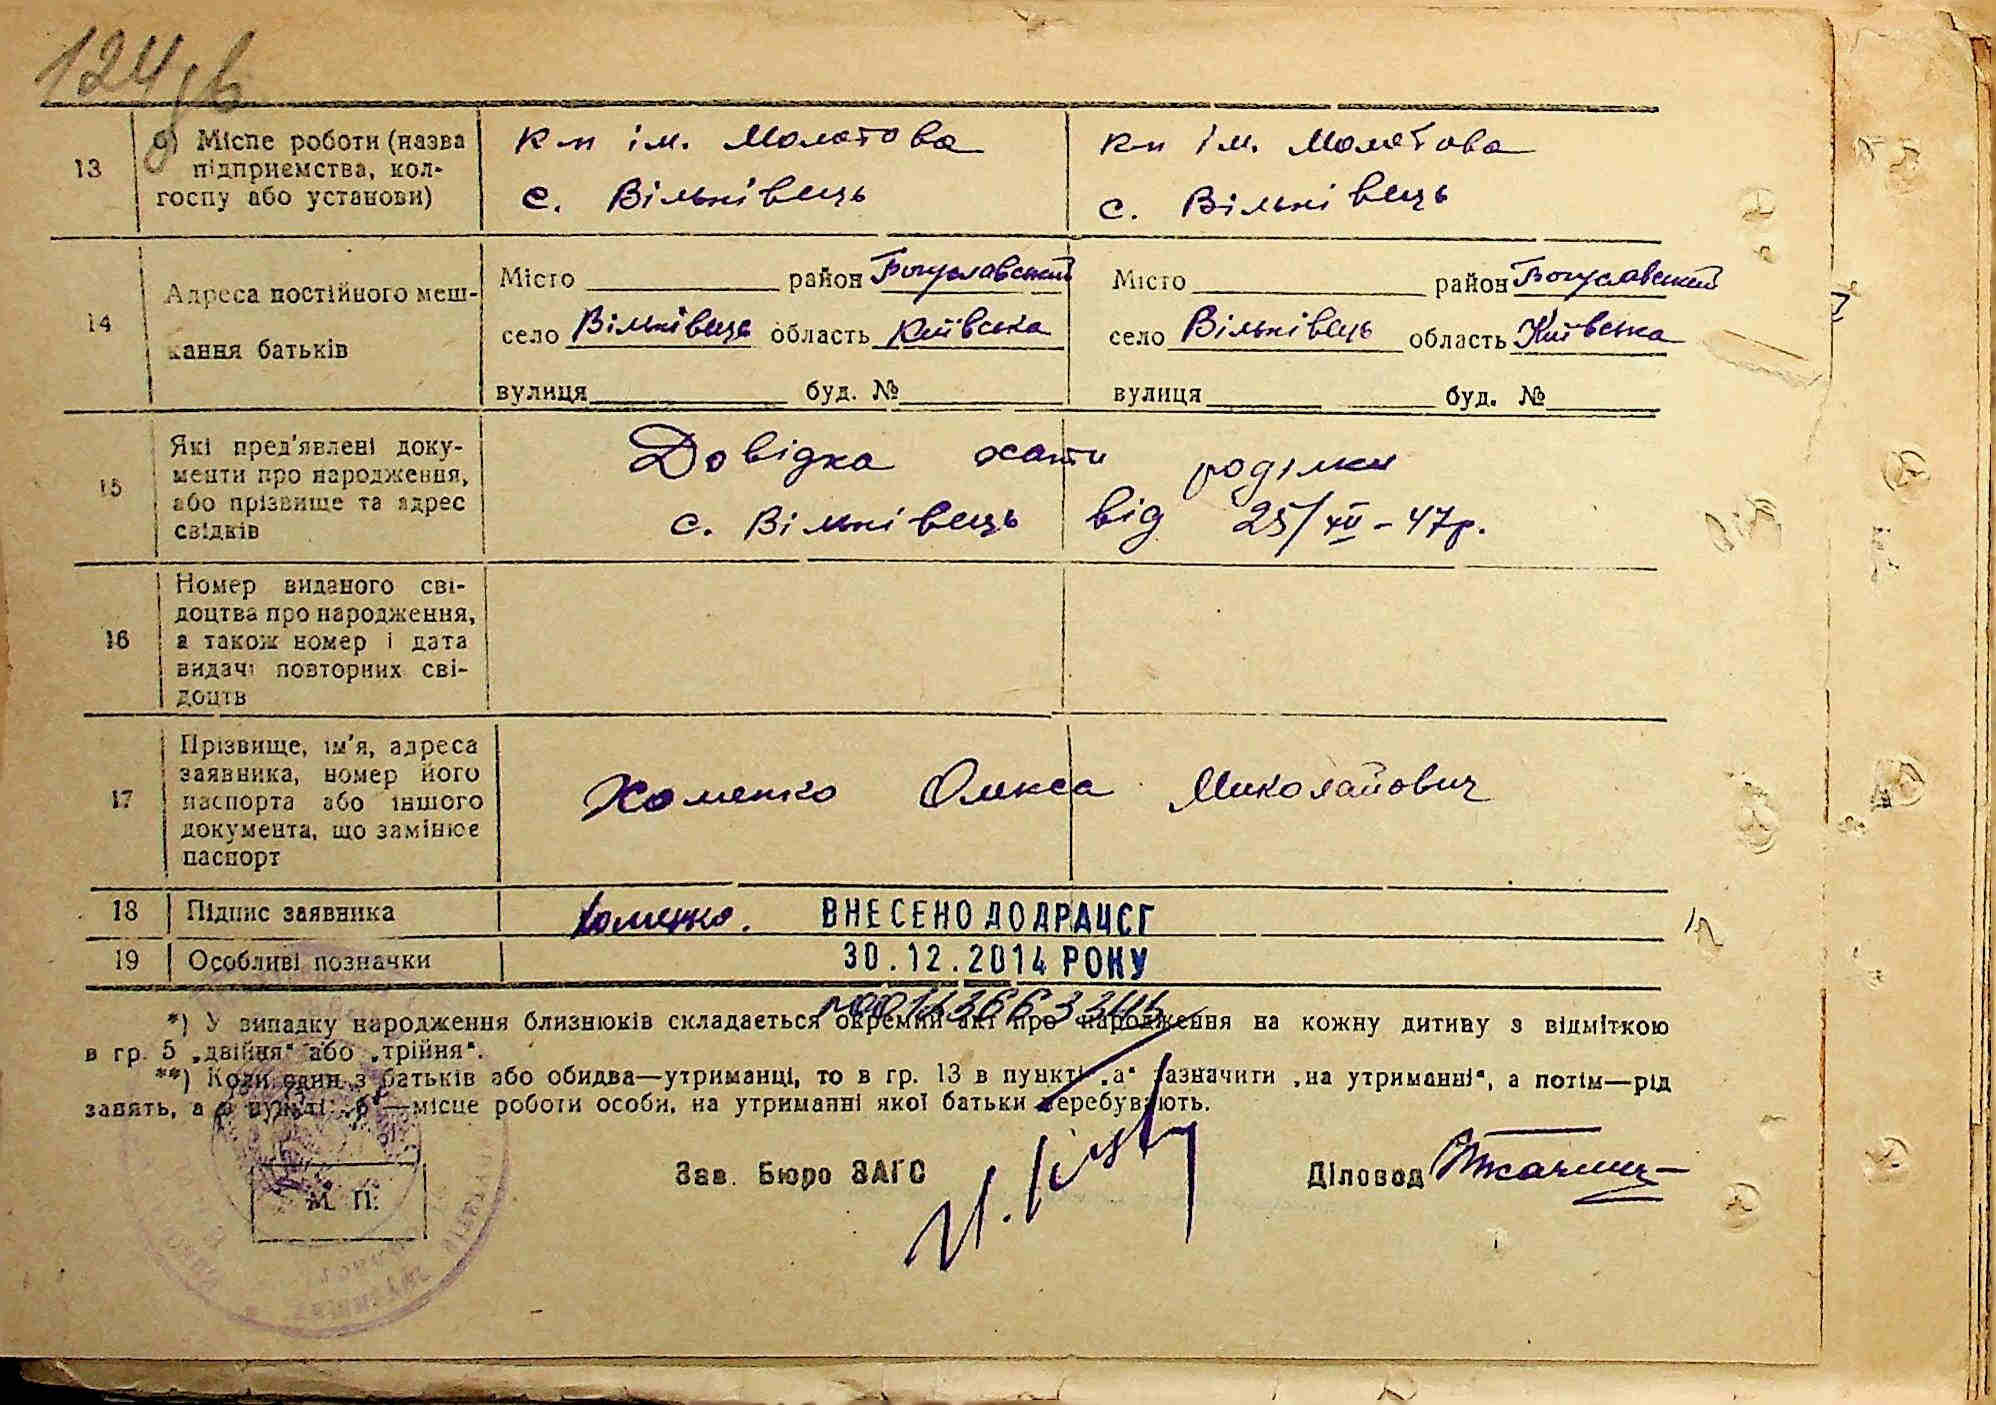 124 зв
13
б) Місце роботи (назва
підприємства, кол-
госпу або установи)
к-п ім. Молотова
с. Вільхівець
к-п ім. Молотова
с. Вільхівець
14
Адреса постійного меш-
кання батьків
Місто район Богуславський
село Вільхівець область Київська
вулиця буд. №
Місто район Богуславський
село Вільхівець область Київська
вулиця буд. №
15
Які пред'явлені доку-
менти про народження,
або прізвище та адрес
свідків
Довідка хати роділки
с. Вільхівець від 25/XII-47р.
16
Номер виданого сві-
доцтва про народження,
а також номер і дата
видачі повторних сві-
доцтв
17
Прізвище, ім'я, адреса
заявника, номер його
паспорта або іншого
документа, що замінює
паспорт
Хоменко Олекса Миколайович
18 Підпис заявника Хоменко. ВНЕСЕНО ДО ДРАЦСГ
19 Особливі позначки 30.12.2014 РОКУ
*) У випадку народження близнюків складається окремий акт про народження на кожну дитину з відміткою
в гр. 5 „двійня“ або „трійня“.
**) Коли один з батьків або обидва—утриманці, то в гр. 13 в пункті „а“ зазначити „на утриманні“, а потім—рід
занять, а в пункті „б“—місце роботи особи, на утриманні якої батьки перебувають.
Зав. Бюро ЗАГС
Діловод
М. П.